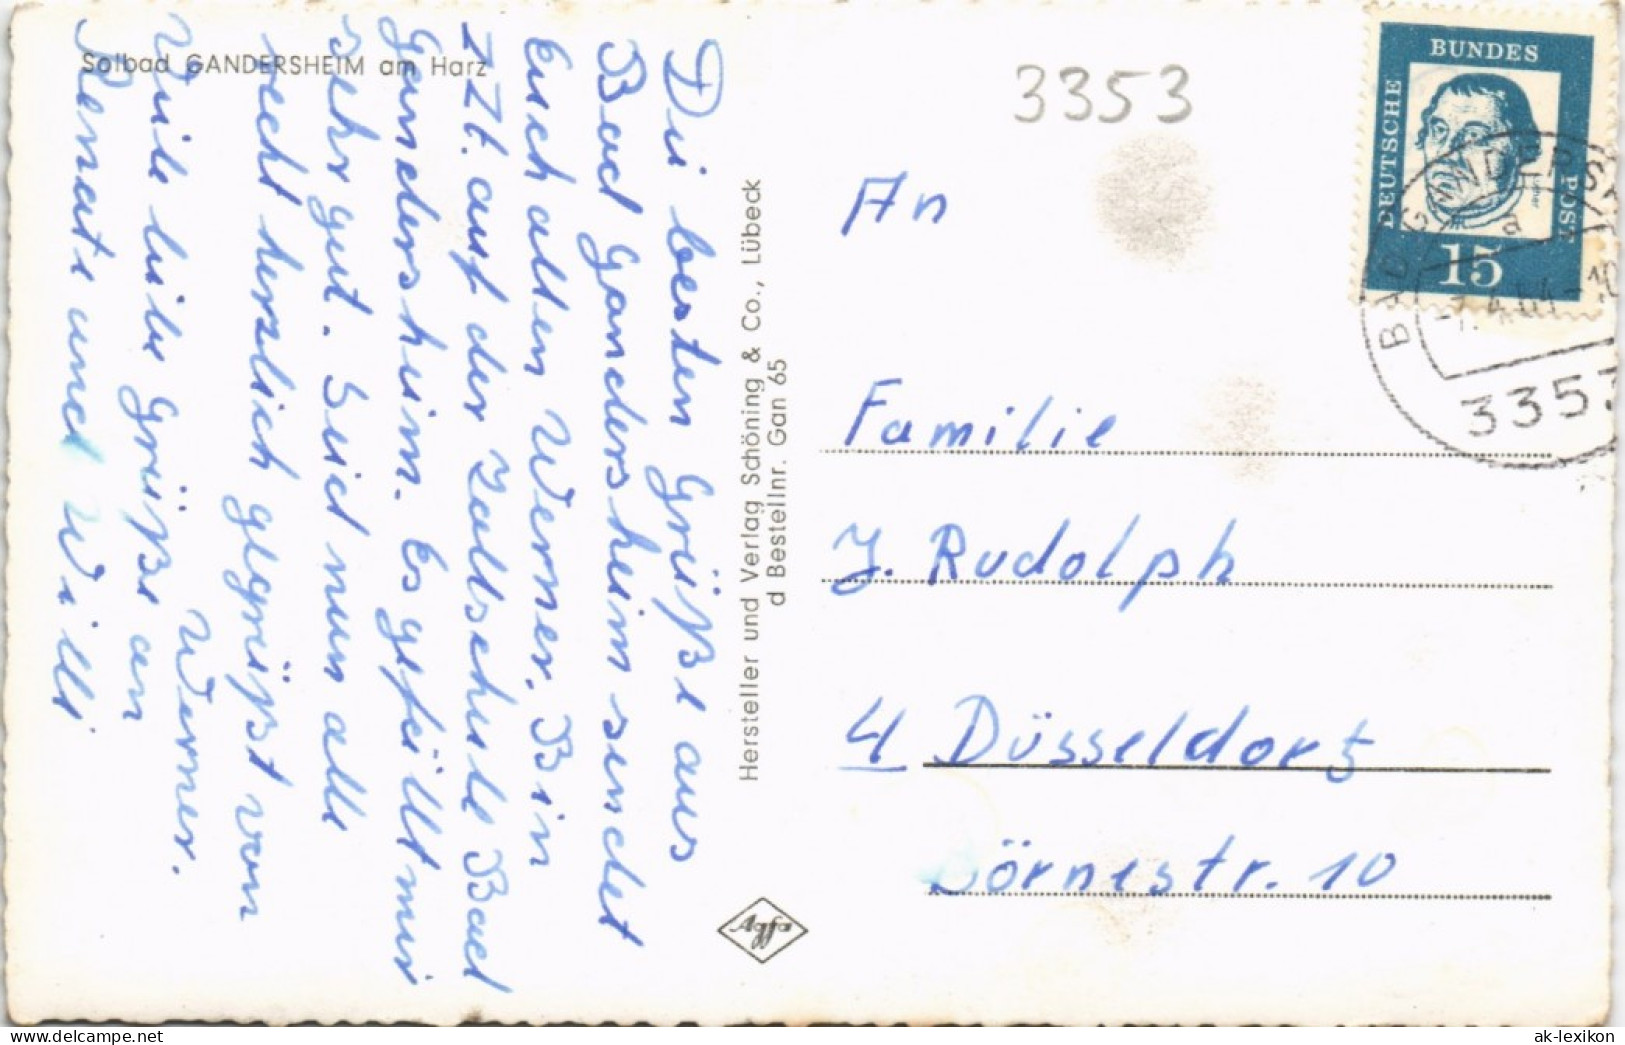 Solbad GANDERSHEIM am Harz
Die besten Grüße aus
Bad Gandersheim sendet
Euch allen Werner. Bin
z.Zt. auf der Zollschule Bad
Gandersheim. Es gefällt mir
sehr gut. Seid nun alle
recht herzlich gegrüßt von
Werner.
Viele liebe Grüße an
Renate und Willi
Hersteller und Verlag Schöning & Co., Lübeck
d Bestellnr. Gan 65
Agfa
3353
An
Familie
J. Rudolph
4 Düsseldorf
Börnestr. 10
DEUTSCHE
BUNDES
POST
15
BAD GANDERSH
a
-7.4.64-10
3353
www.delcampe.net
ak-lexikon